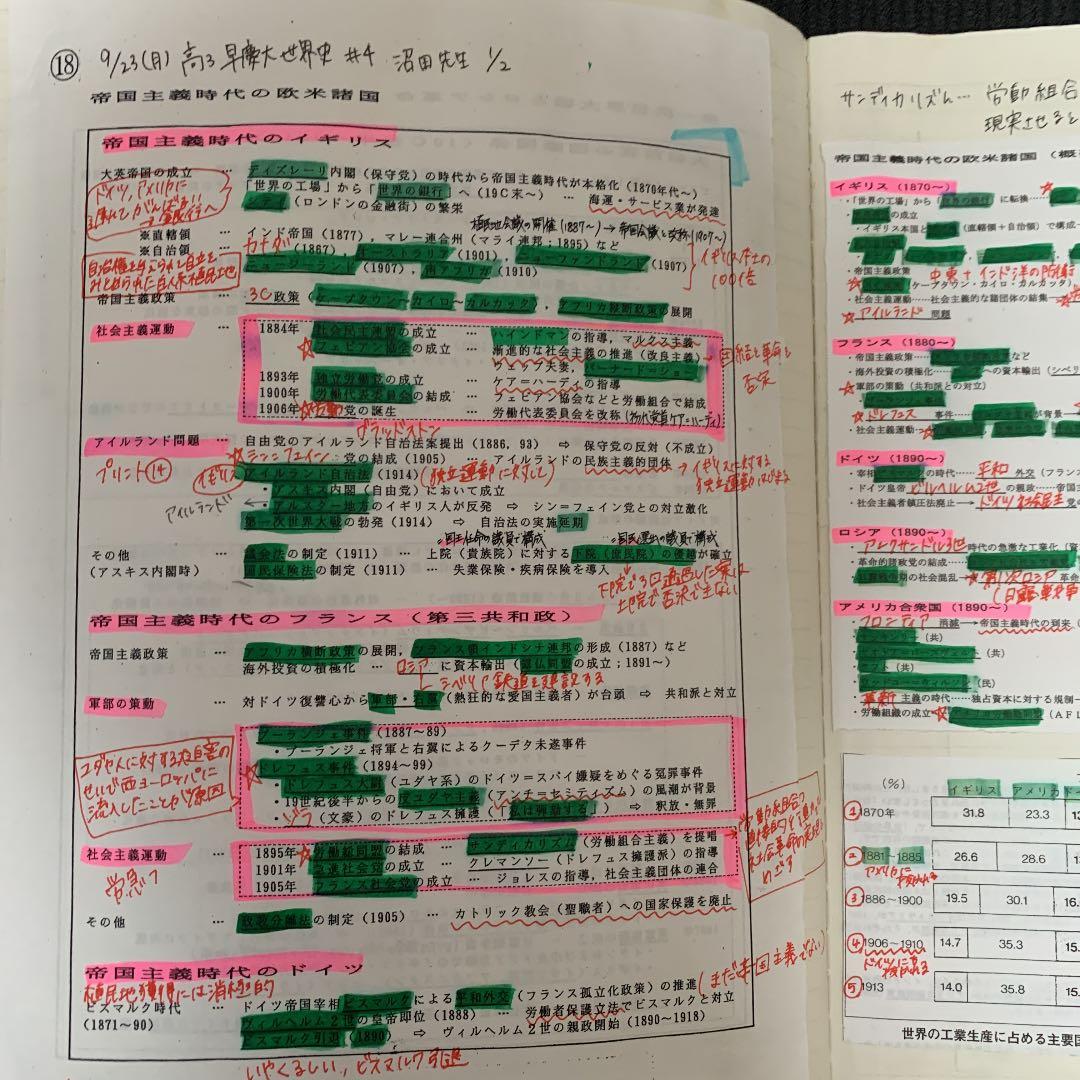 ⑱ 9/23(月) 高3 早慶大世界史 #4 沼田先生 1/2
帝国主義時代の欧米諸国
帝国主義時代のイギリス
大英帝国の成立 … ディズレーリ内閣（保守党）の時代から帝国主義時代が本格化（1870年代〜）
「世界の工場」から「世界の銀行」へ（19C末〜） … 海運・サービス業が発達
シティ（ロンドンの金融街）の繁栄
ドイツ、アメリカに
→銀行へ
植民地会議の開催(1887〜)→帝国会議と改称(1907〜)
※直轄領 … インド帝国（1877） マレー連合州（マライ連邦；1895）など
※自治領 … カナダ（1867） オーストラリア（1901） ニューファンドランド（1907）
ニュージーランド（1907） 南アフリカ（1910）
イギリス本土の
100倍
自治権を与えられて自立を
みとめられた白人系植民地
帝国主義政策 … 3C政策（ケープタウン〜カイロ〜カルカッタ），アフリカ縦断政策の展開
社会主義運動 … 1884年 社会民主連盟の成立 … ハインドマンの指導，マルクス主義
☆フェビアン協会の成立 … 漸進的な社会主義の推進（改良主義）
ウェッブ夫妻，バーナード＝ショー
団結と革命を
否定
1893年 独立労働党の成立 … ケア＝ハーディの指導
1900年 労働代表委員会の結成 … フェビアン協会などと労働組合で結成
1906年 ☆労働党の誕生 … 労働代表委員会を改称(初代党首ケア=ハーディ)
グラッドストン
アイルランド問題 … 自由党のアイルランド自治法案提出（1886，93） ⇨ 保守党の反対（不成立）
プリント⑭
☆シン=フェイン党の結成（1905） … アイルランドの民族主義的団体
→イギリスに対する
独立運動
イギリス
アイルランド自治法（1914）(独立運動に対して)
・アスキス内閣（自由党）において成立
アイルランド
・アルスター地方のイギリス人が反発 ⇨ シン＝フェイン党との対立激化
第一次世界大戦の勃発（1914） ⇨ 自治法の実施延期
国王任命の議員で構成 国民選出の議員で構成
その他 … 議会法の制定（1911） … 上院（貴族院）に対する下院（庶民院）の優越が確立
（アスキス内閣時） 国民保険法の制定（1911） … 失業保険・疾病保険を導入
下院で3回通過した案は
上院で否決できない
帝国主義時代のフランス（第三共和政）
帝国主義政策 … アフリカ横断政策の展開，フランス領インドシナ連邦の形成（1887）など
海外投資の積極化 … ロシアに資本輸出（露仏同盟の成立；1891〜）
シベリア鉄道を建設する
軍部の策動 … 対ドイツ復讐心から軍部・右翼（熱狂的な愛国主義者）が台頭 ⇨ 共和派と対立
ブーランジェ事件（1887〜89）
・ブーランジェ将軍と右翼によるクーデタ未遂事件
☆ドレフュス事件（1894〜99）
・ドレフュス大尉（ユダヤ系）のドイツ＝スパイ嫌疑をめぐる冤罪事件
・19世紀後半からの反ユダヤ主義（アンチ＝セミティズム）の風潮が背景
・ゾラ（文豪）のドレフュス擁護（「私は弾劾する」） ⇨ 釈放・無罪
ユダヤ人に対する迫害の
せいで西ヨーロッパに
流入したことが原因
社会主義運動 … 1895年 ☆労働総同盟の結成 … サンディカリズム（労働組合主義）を提唱
1901年 急進社会党の成立 … クレマンソー（ドレフュス擁護派）の指導
1905年 フランス社会党の成立 … ジョレスの指導，社会主義団体の連合
労急フ
労働組合の
めざす
その他 … 政教分離法の制定（1905） … カトリック教会（聖職者）への国家保護を廃止
帝国主義時代のドイツ
植民地獲得には消極的
(まだ帝国主義でない)
ビスマルク時代 … ドイツ帝国宰相ビスマルクによる平和外交（フランス孤立化政策）の推進
（1871〜90） ヴィルヘルム2世の皇帝即位（1888） … 労働者保護立法でビスマルクと対立
ビスマルク引退（1890） ⇨ ヴィルヘルム2世の親政開始（1890〜1918）
いやくるしい、ビスマルク引退
サンディカリズム… 労働組合
現実させると
帝国主義時代の欧米諸国（概
イギリス（1870〜）
・「世界の工場」から「世界の銀行」に転換…
の成立
・イギリス本国と（直轄領＋自治領）で構成
・帝国主義政策 中東＋インド洋の
（ケープタウン・カイロ・カルカッタ），
・社会主義運動……社会主義的な諸団体の結集
☆アイルランド 問題
フランス（1880〜）
・帝国主義政策… など
・海外投資の積極化… への資本輸出（シベリ
☆軍部の策動（共和派との対立）
ブーランジェ事件
☆ドレフュス 事件… が背景
・社会主義運動
ドイツ（1890〜）
・宰相 の時代…… 平和 外交（フラン
・ドイツ皇帝 ビルヘルム2世 の親政……帝国
・社会主義者鎮圧法廃止→ドイツ社会民主党
ロシア（1890〜）
・アレクサンドル3世 時代の急激な工業化（資
・革命的諸政党の結成…
・日露戦争期の社会混乱→第1次ロシア
(日露戦争
アメリカ合衆国（1890〜）
・フロンティア 消滅→帝国主義時代の到来（
・マッキンリー（共）
・セオドア＝ローズヴェルト（共）
・タフト（共）
・ウッドロー＝ウィルソン（民）
・革新 主義の時代……独占資本に対する規制
・労働組織の成立 ☆アメリカ労働総同盟（AFL
（％） イギリス アメリカ ド
① 1870年 31.8 23.3 13
② 1881〜1885 26.6 28.6 13
アメリカに
ぬかれる
③ 1886〜1900 19.5 30.1 16.
④ 1906〜1910 14.7 35.3 15.
ドイツにも
ぬかれる
⑤ 1913 14.0 35.8 15.
世界の工業生産に占める主要国